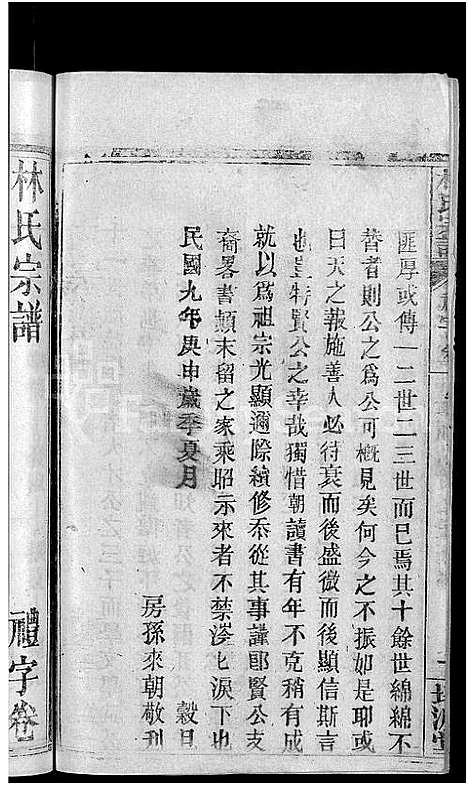 匪厚或傳一二世二三世而已焉其十餘世綿綿不
替者則公之為公可概見矣何今之不振如是耶或
曰天之報施善人必待衰而後盛微而後顯信斯言
也豈特賢公之幸哉獨惜朝讀書有年不克稍有成
就以為祖宗光顯邇際續修忝從其事謹郎賢公支
裔畧書顛末留之家乘昭示來者不禁涔七淚下也
房孫來朝敬刋
民國九年庚申歲季夏月
穀旦
林氏宗譜
禮字卷